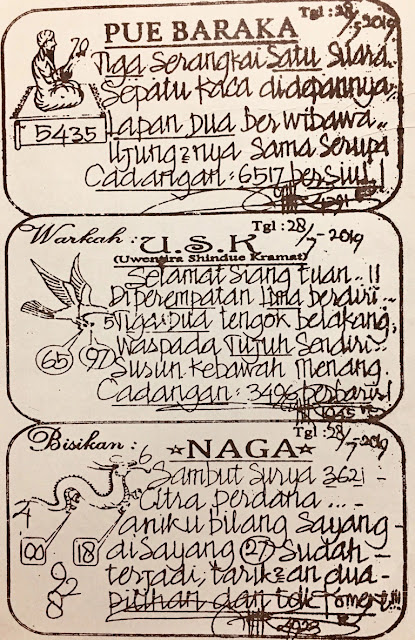 Tgl : 28/5-2019
PUE BARAKA
Tiga Serangkai Satu Suara..
Sepatu Kaca didepannya..
5435
Lapan Dua berwibawa..
Ujung2nya Sama Serupa
Cadangan : 6517 bersiul!
Tgl : 28/7-2019
Warkah :
U.S.K
(Uwentira Shindue Kramat)
Selamat Siang tuan..!!
Diperempatan lima berdiri...
5 Tiga Dua tengok belakang,
65 97
Waspada Tujuh Sendiri..
Susun kebawah menang.
Cadangan : 3496 berbaris!
Tgl : 28/7-2019
Bisikan :
NAGA
6
Sambut Surya 3621 -
Citra perdana ... -
4
aniku bilang Sayang -
00 18
disayang 27 Sudah -
terjadi, tarik2an dua -
92
8
Pilihan dan tdk Tomert!!!